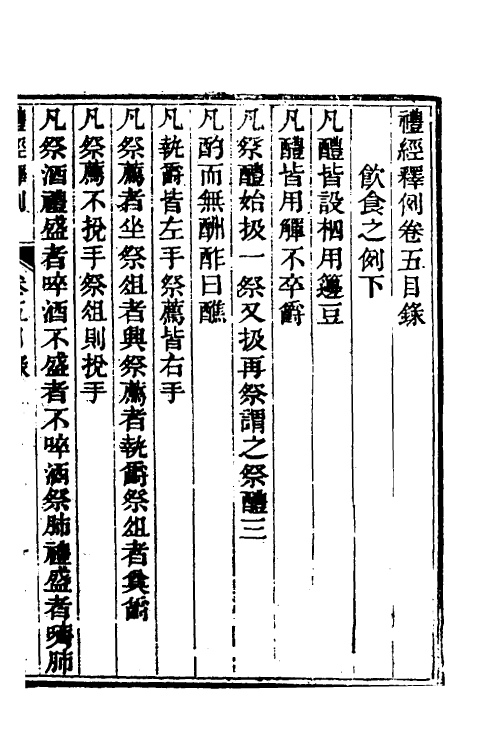 禮經釋例卷五目錄
飲食之例下
凡醴皆設柶用籩豆
凡醴皆用觶不卒爵
凡祭醴始扱一祭又扱再祭謂之祭醴三
凡酌而無酬酢曰醮
凡執爵皆左手祭薦皆右手
凡祭薦者坐祭俎者興祭薦者執爵祭俎者奠爵
凡祭薦不挩手祭俎則挩手
凡祭酒禮盛者啐酒不盛者不啐酒祭肺禮盛者嚌肺
禮經釋例 卷五目錄